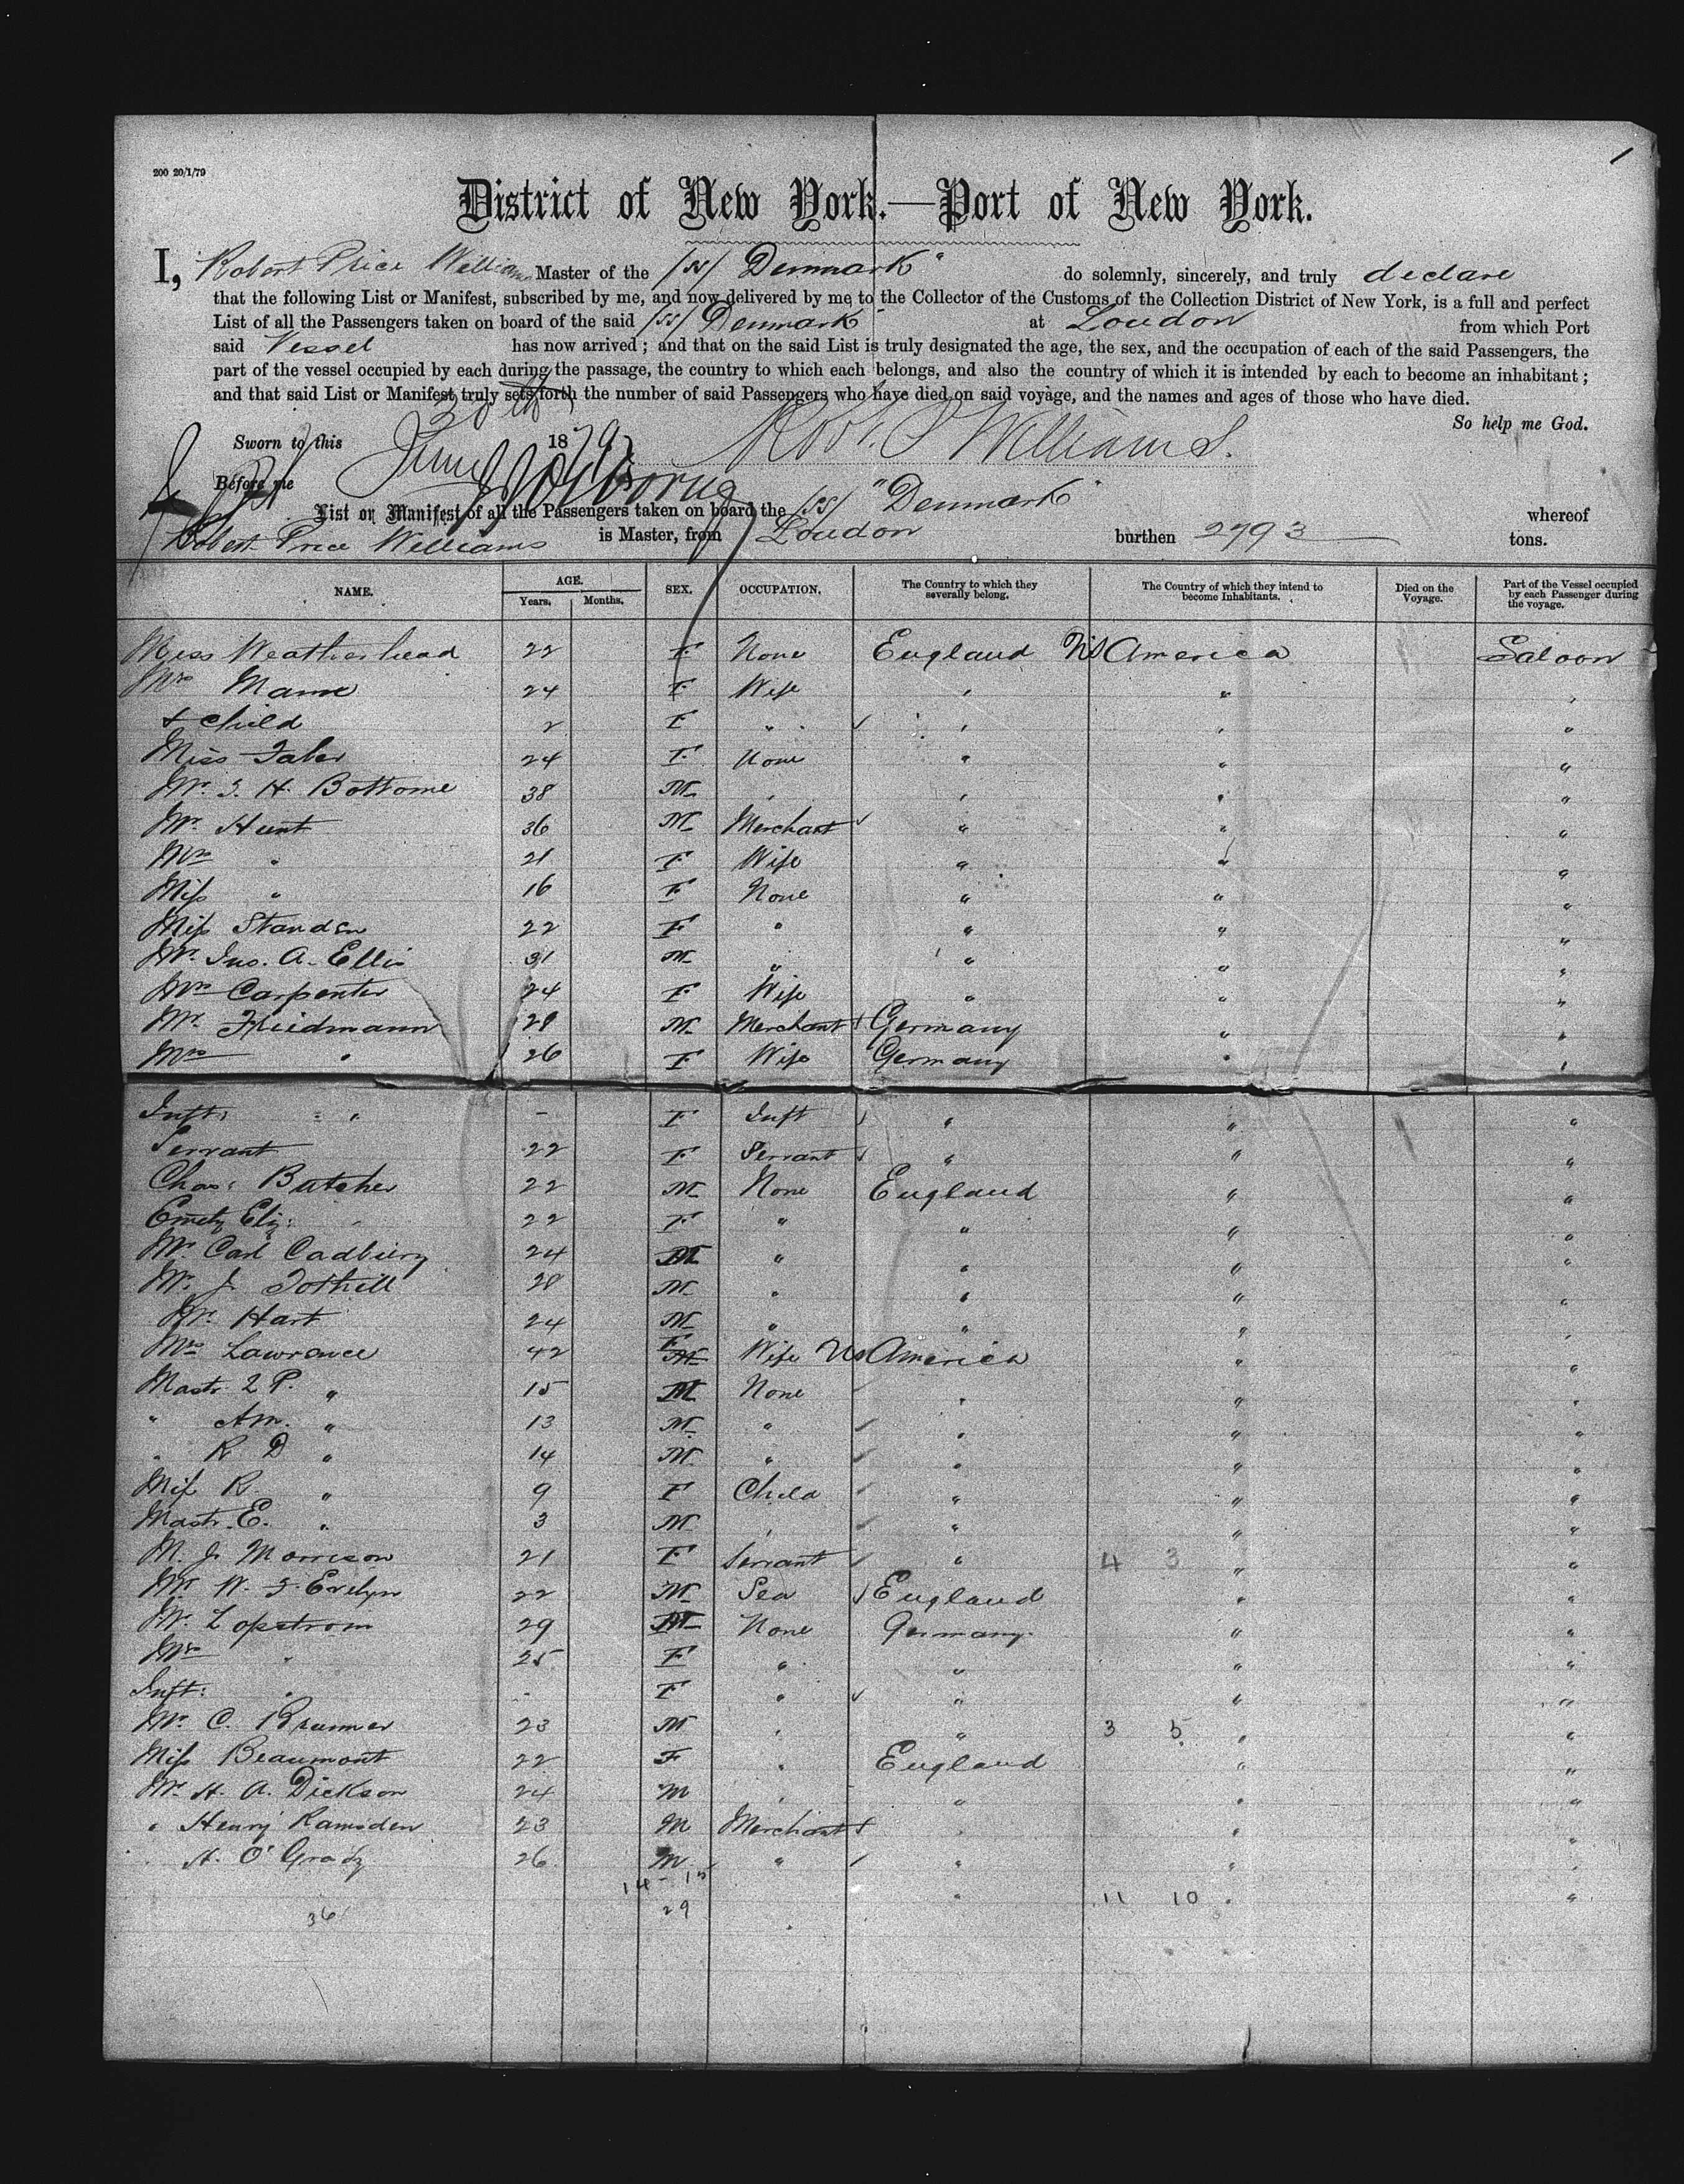 1
200 20/1/79
District of New York.—Port of New York.
I, Robert Price Williams Master of the /ss/ Denmark" do solemnly, sincerely, and truly declare
that the following List or Manifest, subscribed by me, and now delivered by me to the Collector of the Customs of the Collection District of New York, is a full and perfect
List of all the Passengers taken on board of the said /ss/ Denmark" at London from which Port
said Vessel has now arrived; and that on the said List is truly designated the age, the sex, and the occupation of each of the said Passengers, the
part of the vessel occupied by each during the passage, the country to which each belongs, and also the country of which it is intended by each to become an inhabitant;
and that said List or Manifest truly sets forth the number of said Passengers who have died on said voyage, and the names and ages of those who have died.
So help me God.
Sworn to this June 30th 1879 Robt. P Williams.
Before me
List or Manifest of all the Passengers taken on board the /ss/ "Denmark" whereof
Robert Price Williams is Master, from London burthen 2793 tons.
NAME. AGE. Years. Months. SEX. OCCUPATION. The Country to which they severally belong. The Country of which they intend to become Inhabitants. Died on the Voyage. Part of the Vessel occupied by each Passenger during the voyage.
Miss Weatherhead 22 F None England US America Saloon
Mrs Mann 24 F Wife " " "
& Child 2 F " " " "
Miss Faber 24 F None " " "
Mr. H. Bottome 38 M " " " "
Mr. Hunt 36 M Merchant " " "
Mrs " 21 F Wife " " "
Miss " 16 F None " " "
Miss Standen 22 F " " " "
Mr. Jno. A. Ellis 31 M " " " "
Mrs Carpenter 24 F Wife " " "
Mr. Friedmann 28 M Merchant Germany " "
Mrs " 26 F Wife Germany " "
Inft: " - F Inft " " "
Servant 22 F Servant " " "
Chas: Butcher 22 M None England " "
Eliz: 22 F " " " "
Mr. Carl Cadbury 24 M " " " "
Mr. J. Tothill 28 M " " " "
Mr. Hart 24 M " " " "
Mrs Lawrance 42 F Wife US America " "
Mastr. P. " 15 M None " " "
" Am. " 13 M " " " "
" R D " 14 M " " " "
Miss R. " 9 F Child " " "
Mastr. E. " 3 M " " " "
M. J. Morrison 21 F Servant " 4 3 " "
Mr W. Evelyn 22 M Sea England " "
Mr. Lopstrom 29 M None Germany " "
Mrs " 25 F " " " "
Inft: " - F " " " "
Mr. C. Brunner 23 M " " 3 5 " "
Miss Beaumont 22 F " England " "
Mr. H. A. Dickson 24 M " " " "
" Henry Ramsden 23 M Merchant " " "
" H. O'Grady 26 M " " " "
14 - 15 " 11 10 " "
36 29